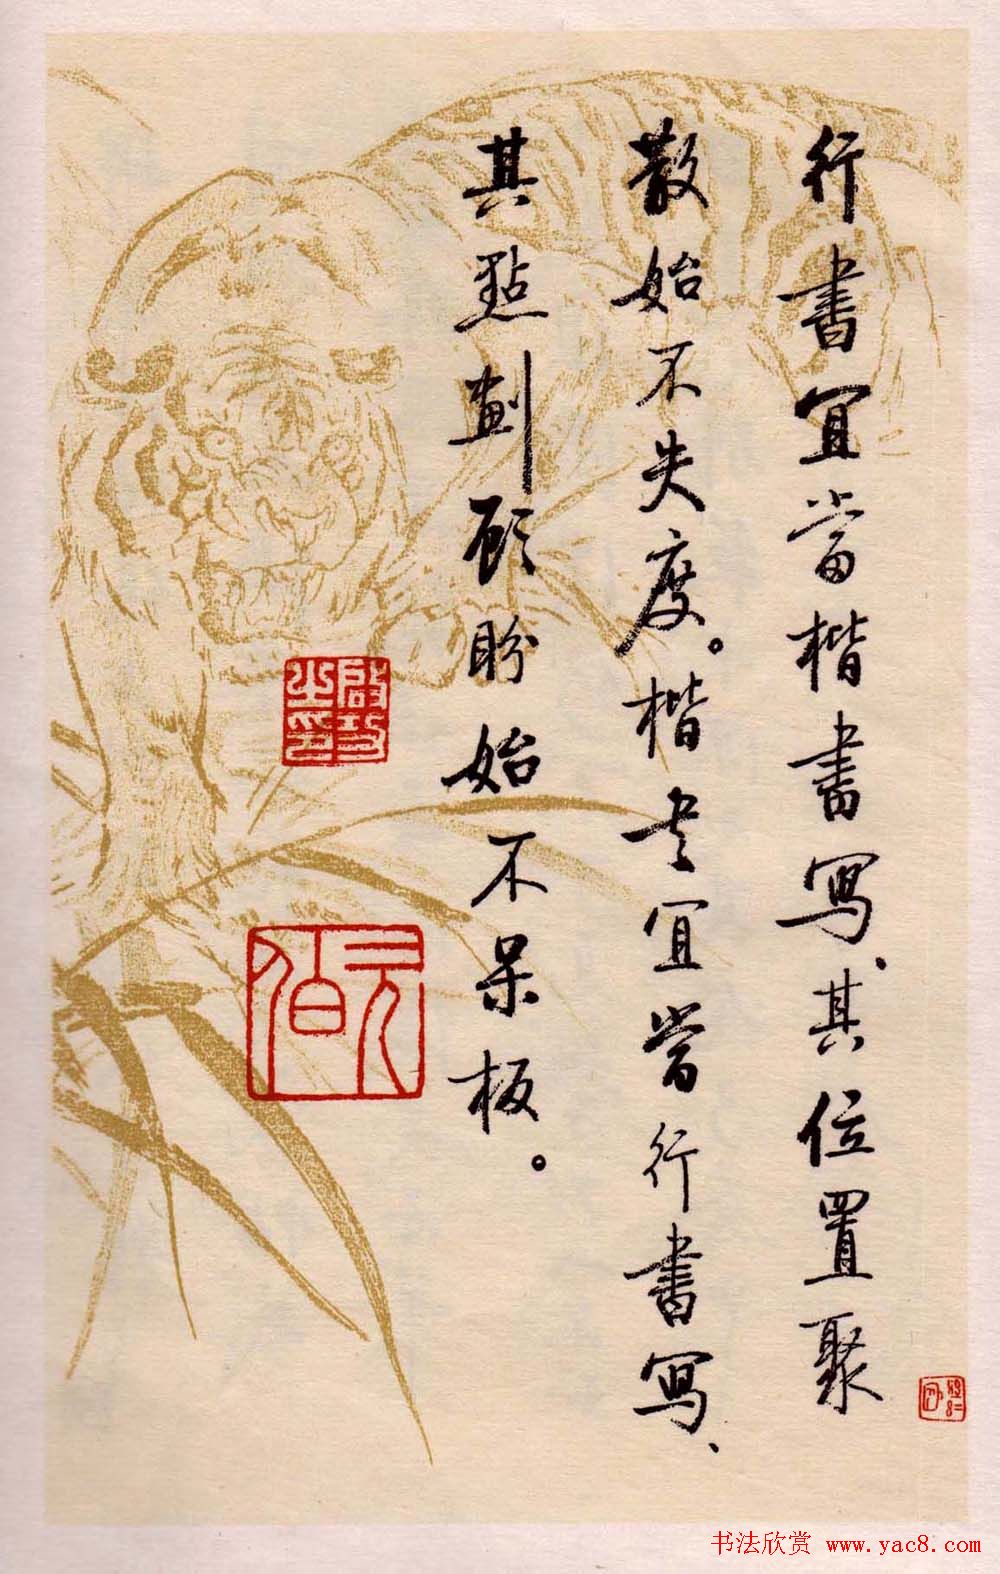 行書宜當楷書寫、其位置聚
散始不失度。楷书宜當行書寫、
其點劃顧盼始不呆板。
啟功之印
元伯
书法欣赏 www.yac8.com